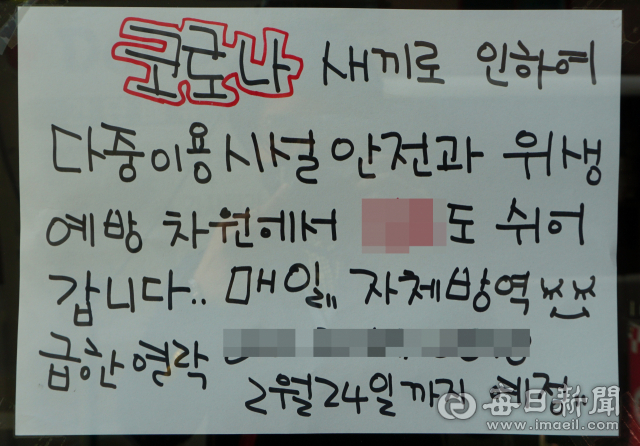 코로나 새끼로 인하여
다중이용시설안전과 위생
예방 차원에서 도 쉬어
갑니다.. 매일 자체방역
급한 연락
2월24일까지 예정
每日新聞
www.imaeil.com